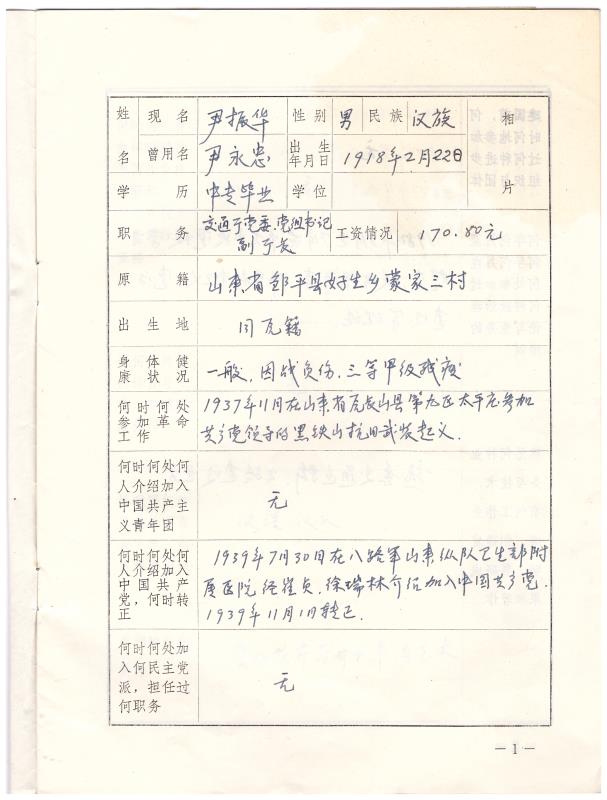 姓名 现名 尹振华 性别 男 民族 汉族 相片
曾用名 尹永忠 出生年月日 1918年2月22日
学历 中专毕业 学位
职务 交通厅党委、党组书记
副厅长 工资情况 170.80元
原籍 山东省邹平县好生乡蒙家三村
出生地 同原籍
身体健康状况 一般,因战负伤,三等甲级残废
何时何处
参加革命
工作
1937年11月在山东省原长山县第九区太平庄参加
共产党领导的黑铁山抗日武装起义.
何时何处何
人介绍加入
中国共产主
义青年团
无
何时何处何
人介绍加入
中国共产
党,何时转
正
1939年7月30日在八路军山东纵队卫生部附
属医院经崔贞、徐瑞林介绍加入中国共产党.
1939年11月1日转正.
何时何处加
入何民主党
派,担任过
何职务
无
—1—